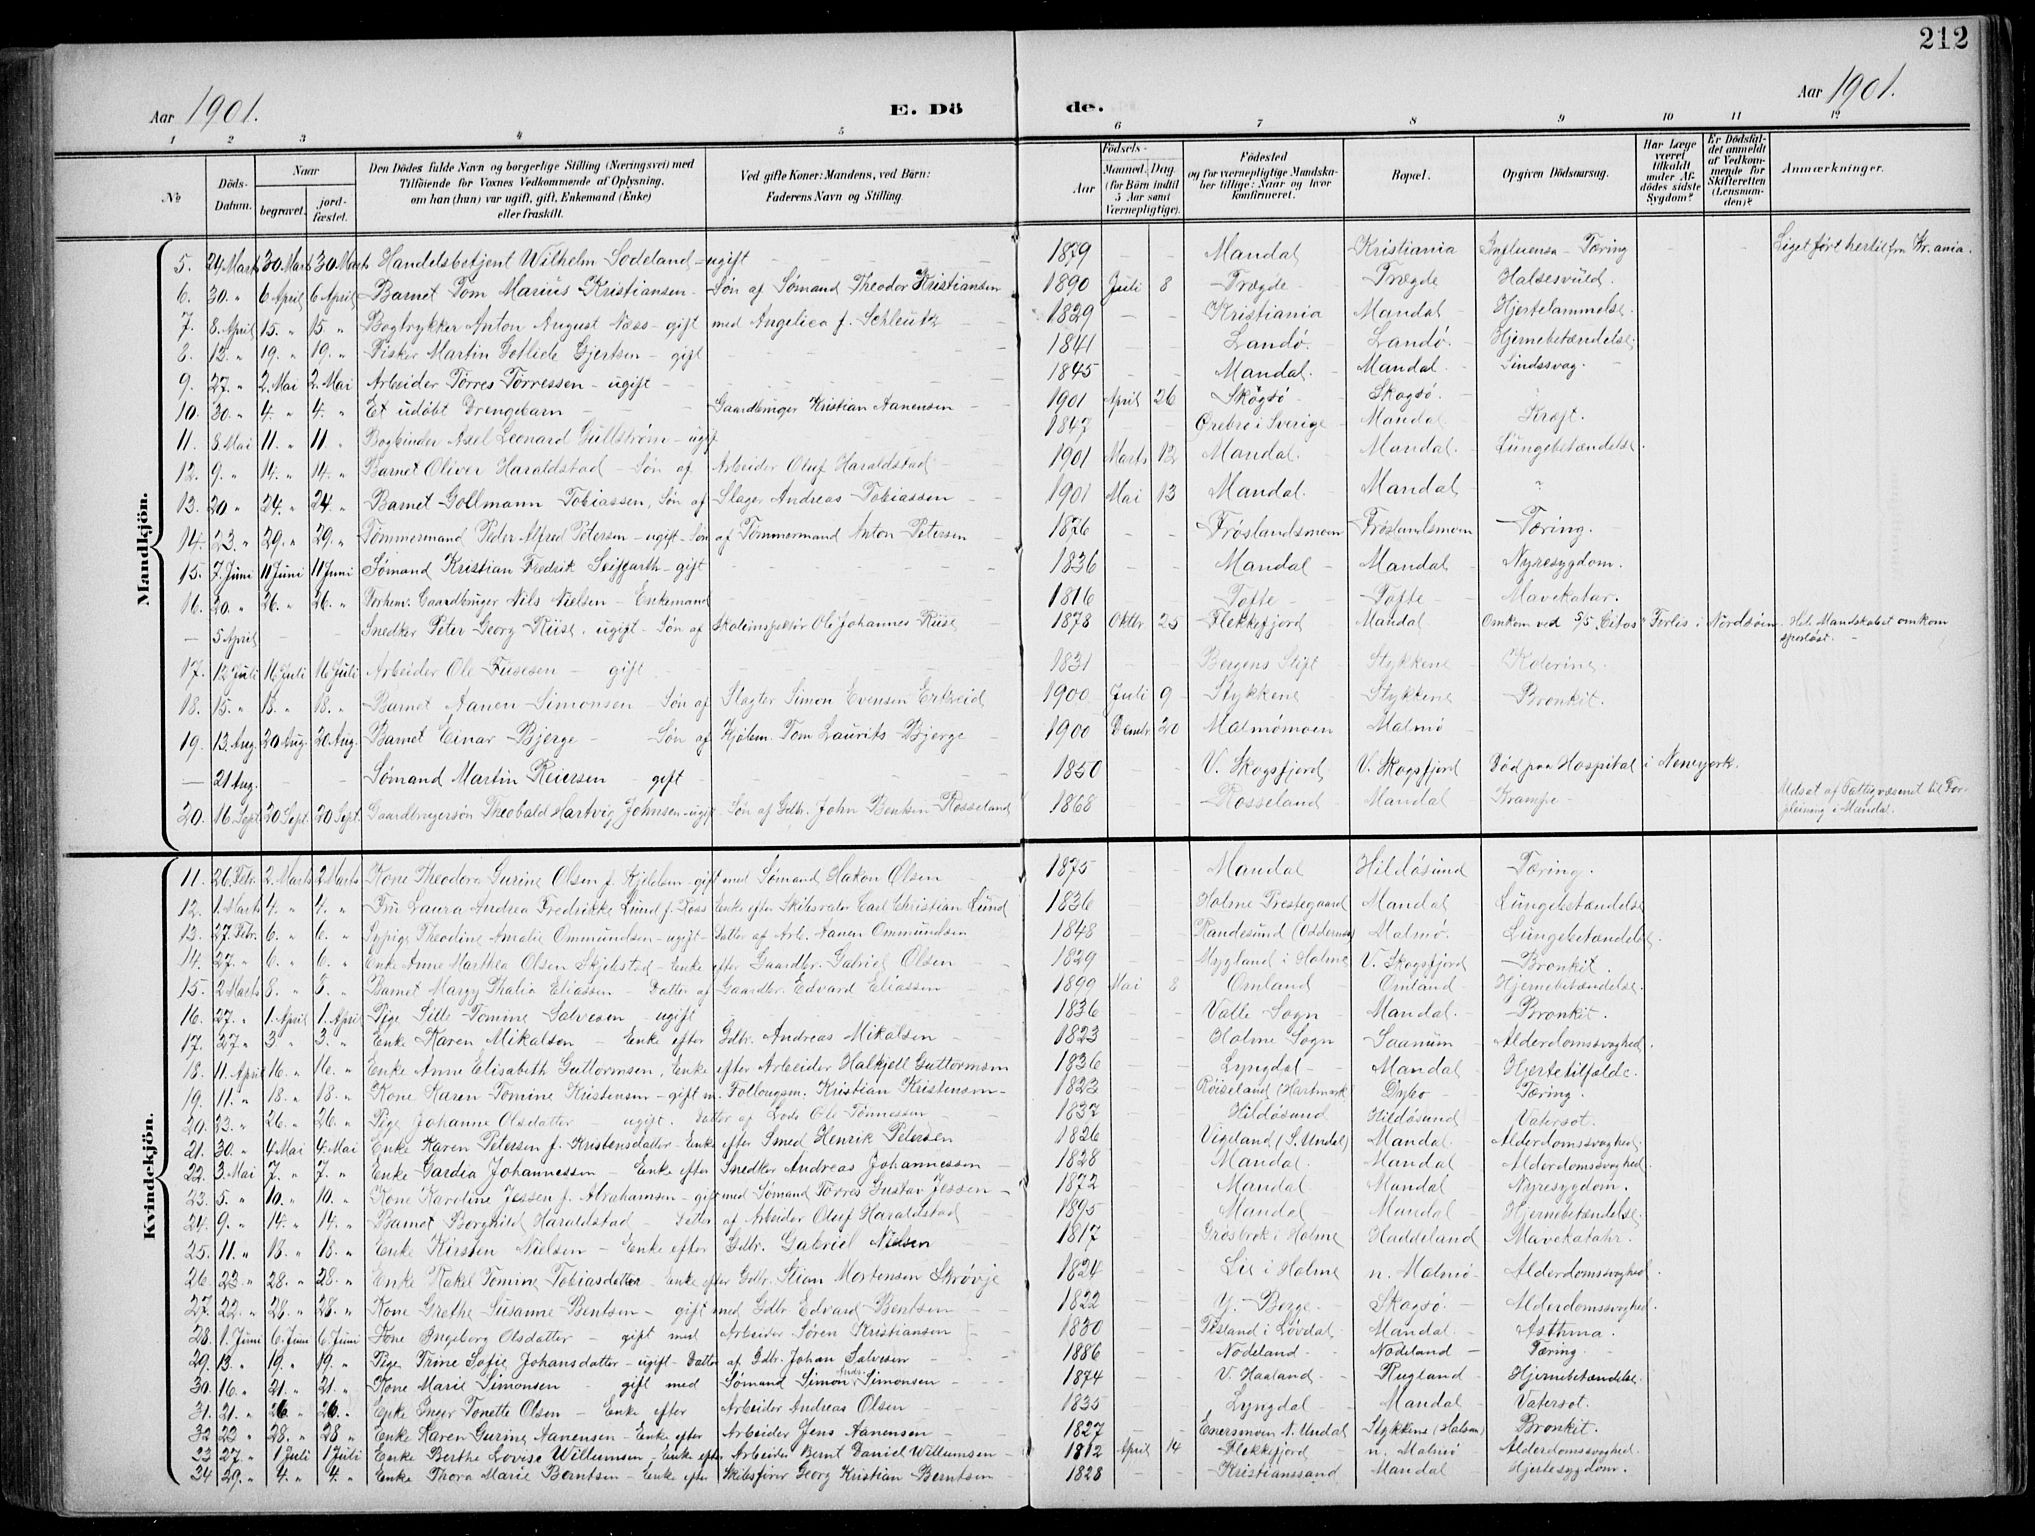 212
Aar 1901. E. Dö de. Aar 1901.
1 2 3 4 5 6 7 8 9 10 11 12
№
Döds-Datum.
Naar
begravet.
jord-fæstet.
Den Dödes fulde Navn og borgerlige Stilling (Næringsvei) med
Tilföiende for Voxnes Vedkommende af Oplysning,
om han (hun) var ugift, gift, Enkemand (Enke)
eller fraskilt.
Ved gifte Koner: Mandens, ved Börn:
Faderens Navn og Stilling.
Födsels-
Aar
Maaned.
Dag.
(for Börn indtil
5 Aar samt
Værnepligtige).
Födested
og for værnepligtige Mandska-
ber tillige: Naar og hvor
konfirmeret.
Bopæl.
Opgiven Dödsaarsag.
Har Læge
været
tilkaldt
under Af-
dödes sidste
Sygdom?
Er Dödsfal-
det anmeldt
af Vedkom-
mende for
Skifteretten
(Lensman-
den)?
Anmærkninger.
Mandkjön.
5. 24 Marts 30 Marts 30 Marts Handelsbetjent Wilhelm Sodeland - ugift 1879 Mandal Kristiania Influensa - Tæring Liget ført hertil fra Kr.ania.
6. 30. " 6 April 6 April Barnet Tom Marius Kristiansen - Søn af Sømand Theodor Kristiansen 1890 Juli 8 Trægde Trægde Halsesvuld.
7. 8. April 15. " 15 " Bogtrykker Anton August Næss - gift med Angelica f. Schleutz 1829 Kristiania Mandal Hjertelammelse.
8. 13. " 19. " 19. " Fisker Martin Gotliele Gjertsen - gift 1841 Landø. Landø. Hjernebetændelse.
9. 27. " 2. Mai 2. Mai Arbeider Tørres Tørressen - ugift 1845 Mandal. Mandal. Sindssvag.
10. 30. " 4. " 4. " Et udøbt Drengebarn Gaardbruger Kristian Aanensen 1901 April 26 Skogsø Skogsø. "
11. 8. Mai 11. " 11 " Bogbinder Axel Leonard Gullstrøm - ugift 1847 Ørebro i Sverige Mandal Kræft.
12. 9. " 14. " 14. " Barnet Oliver Haraldstad - Søn af Arbeider Oluf Haraldstad 1901 Marts 12 Mandal. Mandal. Lungebetændelse
13. 20 " 24. " 24. " Barnet Gollmann Tobiassen, Søn af Slager Andreas Tobiassen 1901 Mai 13 Mandal. Mandal ?
14. 23. " 29. " 29. " Tømmermand Peder Alfred Petersen - ugift - Søn af Tømmermand Anton Petersen 1876 Frøslandsmoen Frøslandsmoen Tæring.
15. 7. Juni 11 Juni 11 Juni Sømand Kristian Fredrik Seiffarth - gift 1836 Mandal Mandal Nyresygdom.
16. 20. " 26. " 26. " Forhem. Gaardbruger Nils Nielsen - Enkemand 1816 Tofte Tofte Mavekatar.
— 5 April Snedker Peter Georg Riise. ugift - Søn af Skoleinspektør Ole Johannes Riise 1878 Oktbr 25 Flekkefjord Mandal Omkom ved S/S "Citos" Forlis i Nordsøen. Hele Mandskabet omkom
sporløst.
17. 12 Juli 16 Juli 16 Juli Arbeider Ole Fusesen - gift 1831 Bergens Stift Stykkene Kolerine.
18. 15. " 18. " 18. " Barnet Aanen Simonsen - Søn af Slagter Simon Evensen Ertzeid 1900 Juli 9 Stykkene Stykkene Bronkit.
19. 13. Aug. 20 Aug. 20 Aug. Barnet Einar Bjerge - Søn af Kjølem. Tom Laurits Bjerge 1900 Dembr 20 Malmømoen Malmø
— 21 Aug. Sømand Martin Reiersen - gift 1850 V. Skogsfjord V. Skogsfjord Død paa Hospital i Newyork.
20. 16 Sept 20 Sept. 20 Sept. Gaardbrugersøn Theobald Hartvig Johnsen - ugift Søn af Gdbr. John Bentsen Rosseland 1868 Rosseland Mandal Krampe Udsat af Fattigvæsenet til For-
pleining i Mandal.
Kvindekjön.
11. 26. Febr. 2. Marts 2 Marts Kone Theodora Gurine Olsen f. Kjeldsen - gift med Sømand Hakon Olsen 1875 Mandal Hildøsund Tæring.
12. 1. Marts 4. " 4. " Fru Laura Andrea Fredrikke Lund f. Roos Enke efter Skibsreder Carl Christian Lund 1836 Holme Prestegaard Mandal Lungebetændelse
13. 27. Febr. 6. " 6. " Sypige Theodine Amalie Ommundsen - ugift - Datter af Arb. Aanen Ommundsen 1848 Randesund (Oddernes) Malmø. Lungebetændelse.
14. 27. " 6. " 6. " Enke Anne Marthea Olsen Skjelstad - Enke efter Gaardbr. Gabriel Olsen 1829 Mygland i Holme V. Skogsfjord Bronkit.
15. 2 Marts 8. " 8. " Barnet Margy Thalia Eliassen - Datter af Gaardbr. Edvard Eliassen 1899 Mai 8 Omland Omland Hjernebetændelse.
16. 27. " 1. April 1. April Pige Sille Tomine Salvesen - ugift 1836 Valle Sogn Mandal. Bronkit.
17. 27 " 3 " 3. " Enke Karen Mikalsen - Enke efter Gdbr. Andreas Mikalsen 1823 Holme Sogn Saanum Alderdomssvaghed.
18. 11. April 16. " 16. " Enke Anne Elisabeth Guttormsen, Enke efter Arbeider Halkjell Guttormsen 1836 Lyngdal Mandal Hjertetilfælde.
19. 11. " 18. " 18. " Kone Karen Tomine Kristensen - gift m. Føllougsm. Kristian Kristensen 1823 Røiseland (Hartmark Dybo Tæring.
20. 23. " 26. " 26. " Pige Johanne Olsdatter - ugift. Datter af Lods Ole Tønnessen 1837 Hildøsund Hildøsund Vatersot.
21. 30. " 4 Mai 4. Mai Enke Karen Petersen f. Kristensdatter - Enke efter Smed Henrik Petersen 1826 Vigeland (S. Undal) Mandal Alderdomssvaghed.
22. 3. Mai 7. " 7. " Enke Gardea Johannessen - Enke efter Snedker Andreas Johannessen 1828 Mandal. Mandal Alderdomssvaghed.
23. 5. " 10. " 10. " Kone Karoline Jessen f. Abrahamsen - gift med Sømand Tørres Gustav Jessen 1872 Mandal Mandal Nyresygdom.
24. 9. " 14. " 14. " Barnet Borghild Haraldstad - Datter af Arbeider Oluf Haraldstad 1895 Mandal Mandal Hjernebetændelse.
25. 11. " 18. " 18. " Enke Kirsten Nielsen - Enke efter Gdbr. Gabriel Nielsen 1817 Grosbrok i Holme Haddeland Mavekatahr.
26. 23 " 28. " 28. " Enke Rakel Tomine Tobiasdatter - Enke efter Gdbr. Stian Mortensen Skrøvje 1824 Lie i Holme n. Malmø Alderdomssvaghed
27. 22. " 28. " 28. " Kone Grethe Susanne Bentsen - gift med Gdbr. Edvard Bentsen 1822 Y. Berge Skogsø. Alderdomssvaghed.
28. 1. Juni 6. Juni 6. Juni Kone Ingeborg Olsdatter - gift med Arbeider Søren Kristiansen 1830 Tisland i Løvdal Mandal. Asthma.
29. 13. " 19. " 19. " Pige Trine Sofie Johansdatter - ugift - Datter af Gdbr. Johan Salvesen 1886 Nodeland Nodeland Tæring.
30. 16. " 21. " 21. " Kone Marie Simonsen - gift med Sømand Simon Andr. Simonsen 1874 V. Haaland Rugland Hjernebetændelse.
31. 21. " 26 " 26. " Enke Inger Tonette Olsen - Enke efter Arbeider Andreas Olsen 1835 Lyngdal Mandal Vatersot.
32 23 " 28. " 28 " Enke Karen Gurine Aanensen - Enke efter Arbeider Jens Aanensen 1827 Enersmoen N. Undal Stykkene (Halsen) Bronkit.
33 27. " 1 Juli 1 Juli Enke Berthe Lovise Willumsen, Enke efter Arbeider Bernt Daniel Willumsen 1812 April 14 Flekkefjord n. Malmø Alderdomssvaghed.
34 29. " 4. " 4. " Enke Thora Marie Berntsen - Enke efter Skibsfører Georg Kristian Berntsen 1828 Kristianssand Mandal Hjertesygdom.